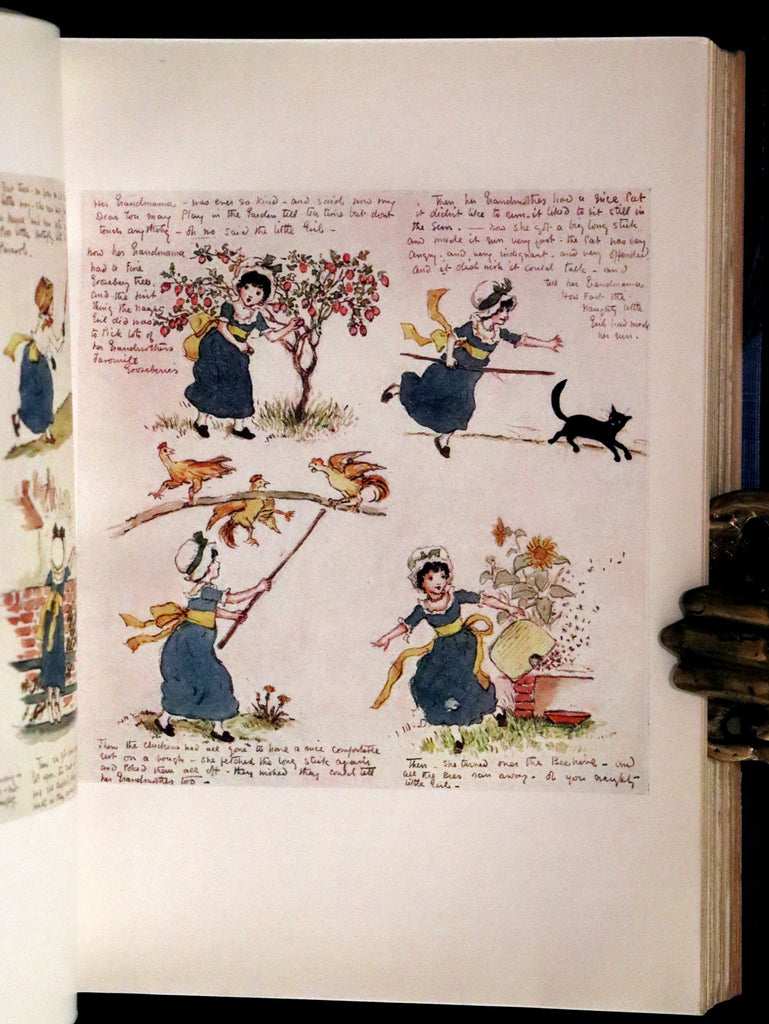 Her Grandmama - was ever so kind - and said now my
Dear You may Play in the Garden till tea time but dont
touch anything - oh no said the little Girl -
now her Grandmama
had a fine
Gooseberry tree,
and the first
thing the naughty
Girl did was
to Pick lots of
her Grandmothers
Favourite
Gooseberries
Then her Grandmother had a nice Cat
it didn't like to run - it liked to sit still in
the sun. - now she got a big long stick
and made it run very fast - the Cat was very
angry - and very indignant - and very offended
and it did wish it could talk - and
tell her Grandmama
How Fast the
Naughty little
Girl had made
her run.
Then the chickens had all gone to have a nice comfortable
rest on a bough - she fetched the long stick again
and Poked them all off - they wished they could tell
her Grandmother too -
Then - she turned over the Beehive - and
all the Bees ran away - oh you naughty
little Girl -